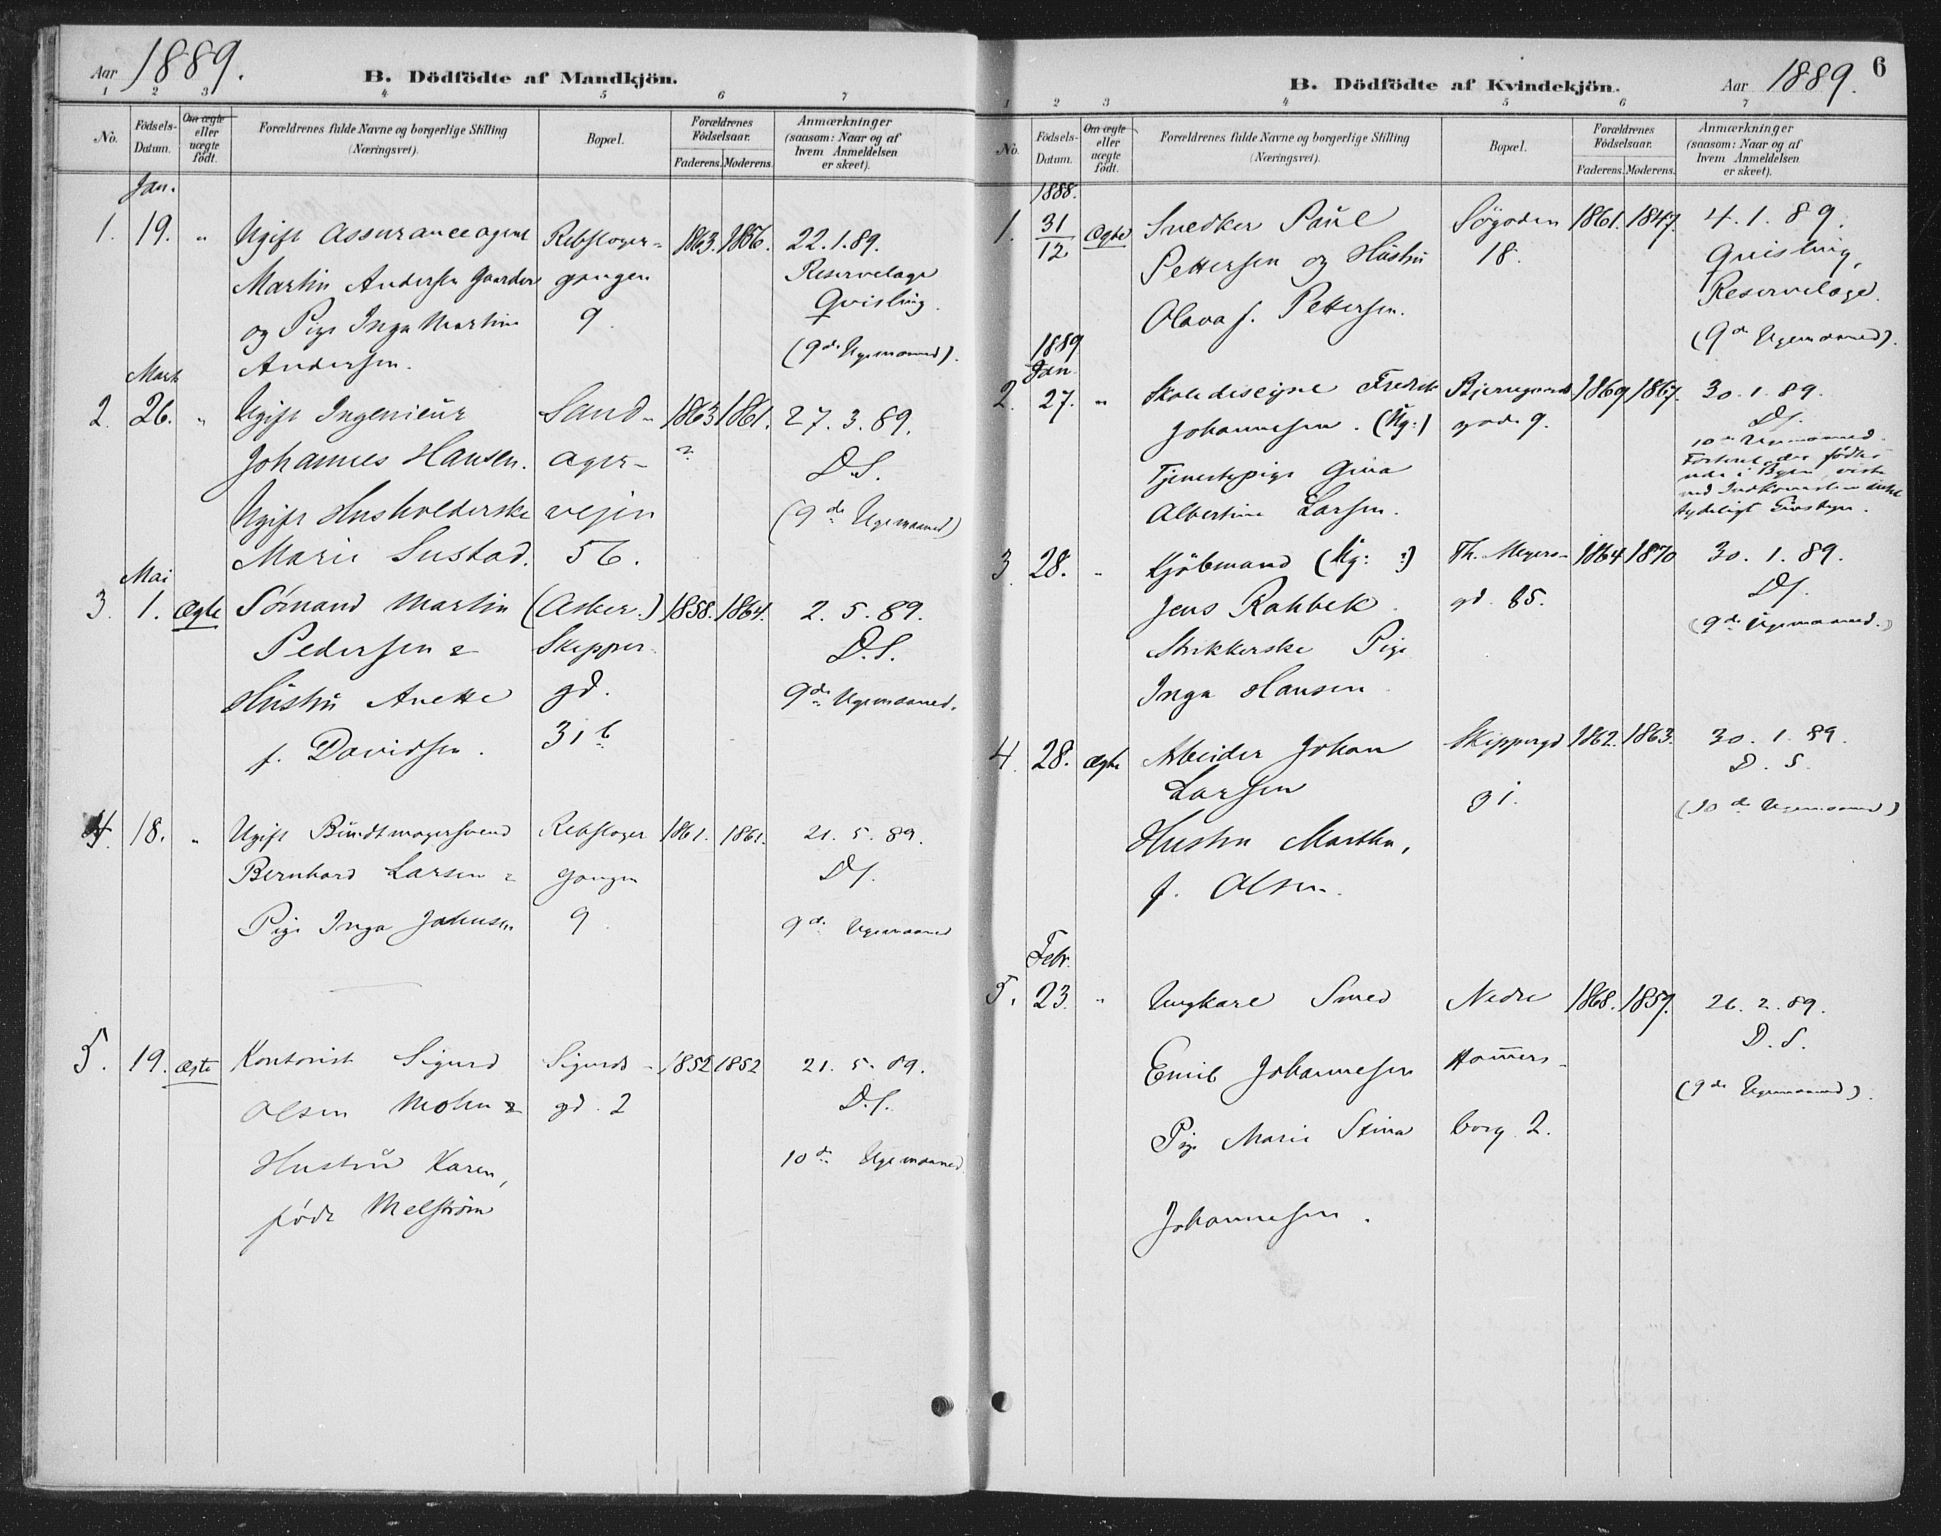 Aar 1889.
B. Dödfödte af Mandkjön.
1 2 3 4 5 6 7
No.
Födsels-Datum.
Om ægte eller uægte födt.
Forældrenes fulde Navne og borgerlige Stilling (Næringsvei).
Bopæl.
Forældrenes Födselsaar.
Faderens. Moderens.
Anmærkninger (saasom: Naar og af hvem Anmeldelsen er skeet).
Jan.
1. 19. " Ugift Assuranceagent Rebslager- 1863. 1856. 22.1.89.
Martin Andersen Gaarder gangen Reservelæge
og Pige Inga Martine 9. Qvisling.
Andersen. (9de Ugemaaned).
Mart
2. 26. " Ugift Ingenieur Sand- 1863 1861. 27.3.89.
Johannes Hansen. ager- ? D.S.
Ugift Husholderske vejen (9de Ugemaaned)
Marie Sustad. 56.
Mai
3. 1. Ægte Sømand Martin (Asker.) 1858. 1864. 2.5.89.
Pedersen & Skipper- D.S.
Hustru Anette gd. 9de Ugemaaned.
f. Davidsen. 31 b
4. 18. " Ugift Bundtmagersvend Rebslager 1861. 1861. 21.5.89.
Bernhard Larsen & gangen D.S.
Pige Inga Johnsen 9. 9de Ugemaaned
5. 19. Ægte Kontorist Sigurd Sigurds- 1852 1852 21.5.89.
Olsen Mohn & gd. 2 D.S.
Hustru Karen, 10de Ugemaaned
født Melstrøm
B. Dödfödte af Kvindekjön.
Aar 1889.
6
1 2 3 4 5 6 7
No.
Födsels-Datum.
Om ægte eller uægte födt.
Forældrenes fulde Navne og borgerlige Stilling (Næringsvei).
Bopæl.
Forældrenes Födselsaar.
Faderens. Moderens.
Anmærkninger (saasom: Naar og af hvem Anmeldelsen er skeet).
1888.
1. 31/12 Ægte Snedker Paul Søgaden 1861. 1847. 4.1.89.
Pettersen og Hustru 18. Quisling,
Olava f. Pettersen. Reservelæge.
(9de Ugemaaned).
1889
Jan.
2. 27. " Skoledisciple Fredrik Bjerregaards 1869 1867. 30.1.89.
Johannesen. (Ug:) gade 9. D.S.
Tjenestepige Gina 10de Ugemaaned.
Albertine Larsen.
3. 28. " Kjøbmand (Ug: ?) Th. Meyers- 1864 1870 30.1.89.
Jens Rahbek gd. 85. D.S.
Strikkerske Pige (9de Ugemaaned.)
Inga Hansen
4. 28. Ægte Arbeider Johan Skippergd 1862. 1863. 30.1.89.
Larsen 31. D.S.
Hustru Martha, (10de Ugemaaned)
f. Olsen.
Febr.
5. 23. " Ungkarl Smed Nedre 1868. 1859. 26.2.89.
Emil Johannesen Hammers- D.S.
Pige Marie Stina borg 2. (9de Ugemaaned).
Johannesen.